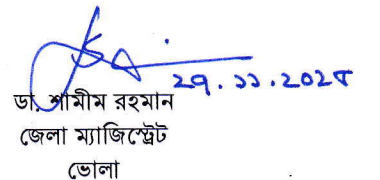 ২৭.১১.২০২৪
ডা. শামীম রহমান
জেলা ম্যাজিস্ট্রেট
ভোলা